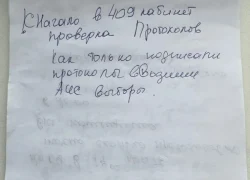 Сначало в 409 кабинет
проверка Протоколов
Как только подписали
протоколы
Аис выборы.